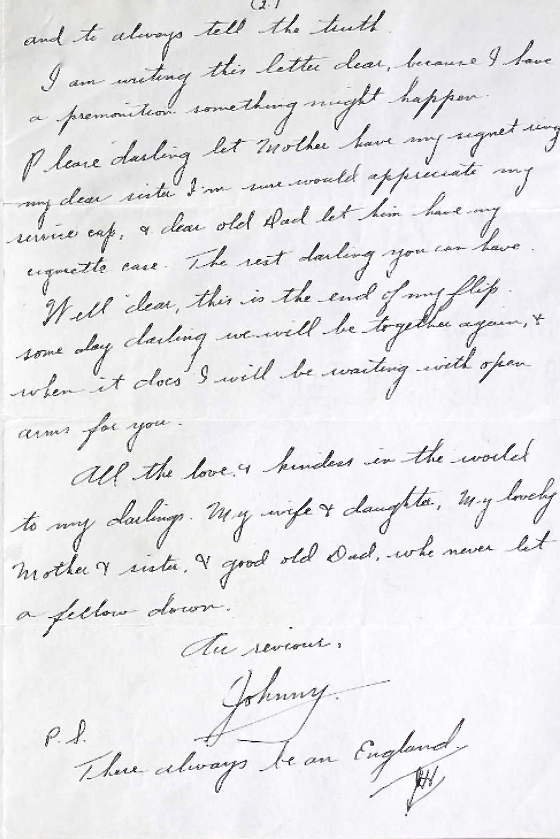 (2)
and to always tell the truth.
I am writing this letter dear, because I have
a premonition something might happen.
Please darling let Mother have my signet ring
my dear sister I'm sure would appreciate my
service cap, & dear old Dad let him have my
cigarette case. The rest darling you can have.
Well dear, this is the end of my flip.
some day darling we will be together again, &
when it does I will be waiting with open
arms for you.
All the love & kindess in the world
to my darlings. My wife & daughter, My lovely
Mother & sister, & good old Dad, who never let
a fellow down.
Au reviour,
Johnny.
P.S.
There always be an England.
JH